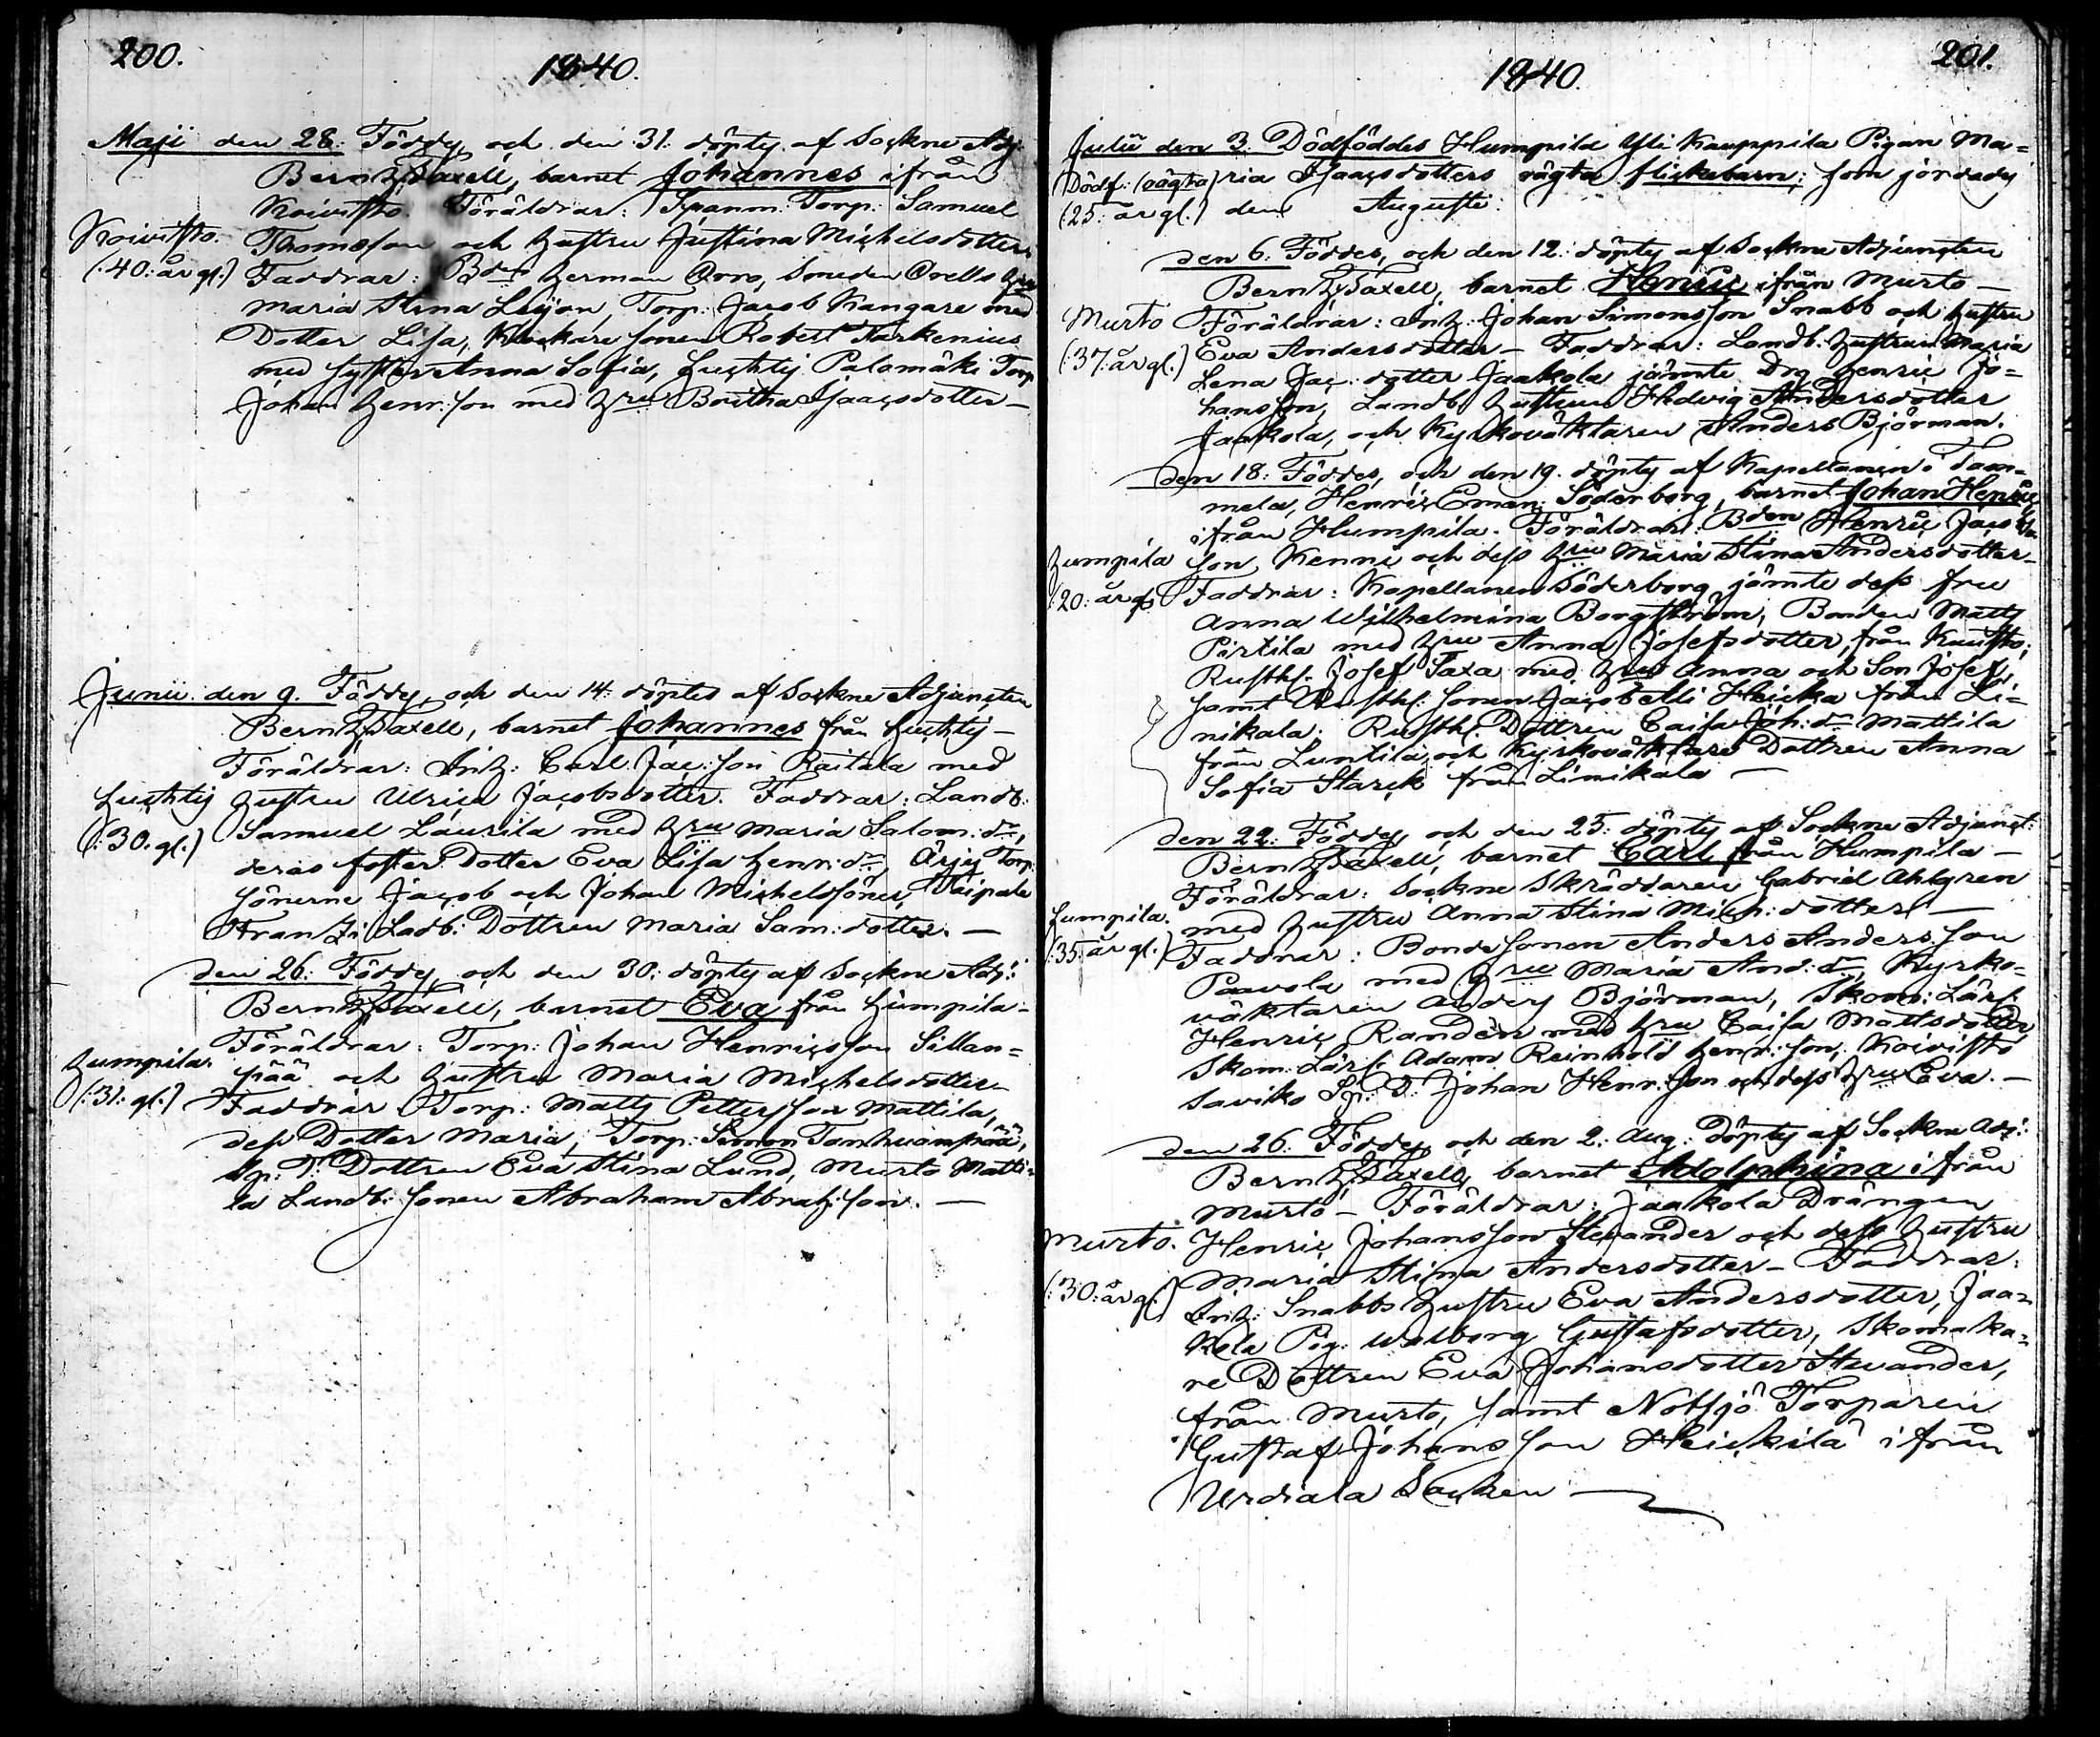 200.
1840.
Maji den 28. Föddes, och den 31. döptes af Sockne Adj.
Bernh. Taxell, barnet Johannes ifrån
Koivisto. Föräldrar: Spanm. Torp. Samuel
Koivisto. Thomasson och hustru Justina Michelsdotter.
(:40: år gl.) Faddrar: Bden Herman Orro, Smeden Orells hru
Maria Stina Leijon, Torp: Jacob Kangare med
Dotter Lisa, Klockare sonen Robert Tarkenius
med syster Anna Sofia, Huchtis Palomäki Torp
Johan Henr:son med hru Britha Isaacsdotter —
Junii den 9. Föddes, och den 14: döptes af Sockne Adjuncten
Bernh. Taxell, barnet Johannes från Huchtis —
Föräldrar: Inh: Carl Jac:son Raitala med
Huchtis hustru Ulrica Jacobsdotter. Faddrar: Landb:
(:30. gl.) Samuel Laurila med hru Maria Salom: dr,
deras foster Dotter Eva Lisa Henr: dr, Ärjy Torp:
sönerne Jacob och Johan Michelssöner, Taipale
Fran Landb: Dottren Maria Sam:dotter. —
den 26: Föddes, och den 30: döptes af Sockne Adj:
Bernh. Taxell, barnet Eva från Humpila —
Föräldrar: Torp: Johan Henricsson Sillan=
Humpila. pää och hustru Maria Michelsdotter
(:31: gl.) Faddrar Torp: Matts Pettersson Mattila,
dess Dotter Maria, Torp: Simon Tanhuanpää,
Sp: T: Dottren Eva Stina Lund, Murto Matti=
la Landb: sonen Abraham Abrah:son. —
201.
1840.
Julii den 3. Dödföddes Humpila Yli Kauppila Pigan Ma=
Dödf: (oägta) ria Isaacsdotters oägta flickebarn; som jordades
(:25: år gl.) den Augusti.
den 6. Föddes, och den 12: döptes af Sockne Adjuncten
Bernh. Taxell, barnet Henric ifrån Murto —
Murto Föräldrar: Inh: Johan Simonsson Snabb och hustru
(:37: år gl.) Eva Andersdotter — Faddrar: Landb. hustrun Maria
Lena Jac: dotter Jaakola jämte Drg Henric Jo=
hansson, Landb. hustrun Hedvig Andersdotter
Jaakola, och Kyrkoväktaren Anders Björman.
den 18: Föddes, och den 19. döptes af Kapellanen i Tam=
mela, Henric Eman: Söderborg, barnet Johan Henric
ifrån Humpila. Föräldrar: Bden Henric Jacobs
Humpila son Kenni och dess hru Maria Stina Andersdotter —
(:20: år gl. Faddrar: Kapellanen Söderborg jämte dess fru
Anna Wilhelmina Borgström, Bonden Matts
Pirtila med hru Anna Josefsdotter, från Kausto;
Rusth. Josef Taxa med hru Anna och Son Josef,
samt Rusth. sonen Jacob Alli Heicka från Li=
nikala. Rusth. Dottren Caisa Joh: dr Mattila
från Luntila, och Kyrkoväktare Dottren Anna
Sofia Starck från Linikala —
den 22: Föddes, och den 25: döptes af Sockne Adjunct:
Bernh. Taxell, barnet Carl från Humpila —
Föräldrar: Sockne Skräddaren Gabriel Ahlgren
Humpila. med hustru Anna Stina Mich: dotter —
(:35: år gl.) Faddrar: Bonde sonen Anders Andersson
Paavola med hru Maria And: dr, Kyrko=
väktaren Anders Björman, Skom: Lärl.
Henric Randèn med hru Caisa Mattsdotter
Skom: Lärl. Adam Reinhold Henr: son, Koivisto
Saviko Sp: T: Johan Henr: son och dess hru Eva. —
den 26. Föddes, och den 2: Aug: döptes af Sockne Adj:
Bernh. Taxell, barnet Adolphina ifrån
Murto — Föräldrar: Jaakola Drängen
Murto. Henric Johansson Stenander och dess hustru
(:30: år gl.) Maria Stina Andersdotter — Faddrar:
Inh: Snabbs hustru Eva Andersdotter, Jaa=
kola Pig: Walborg Gustafsdotter, Skomaka=
re Dottren Eva Johansdotter Stenander,
från Murto, samt Nötsjö Torparen
Gustaf Johansson Heickilä ifrån
Urdiala Sochen —